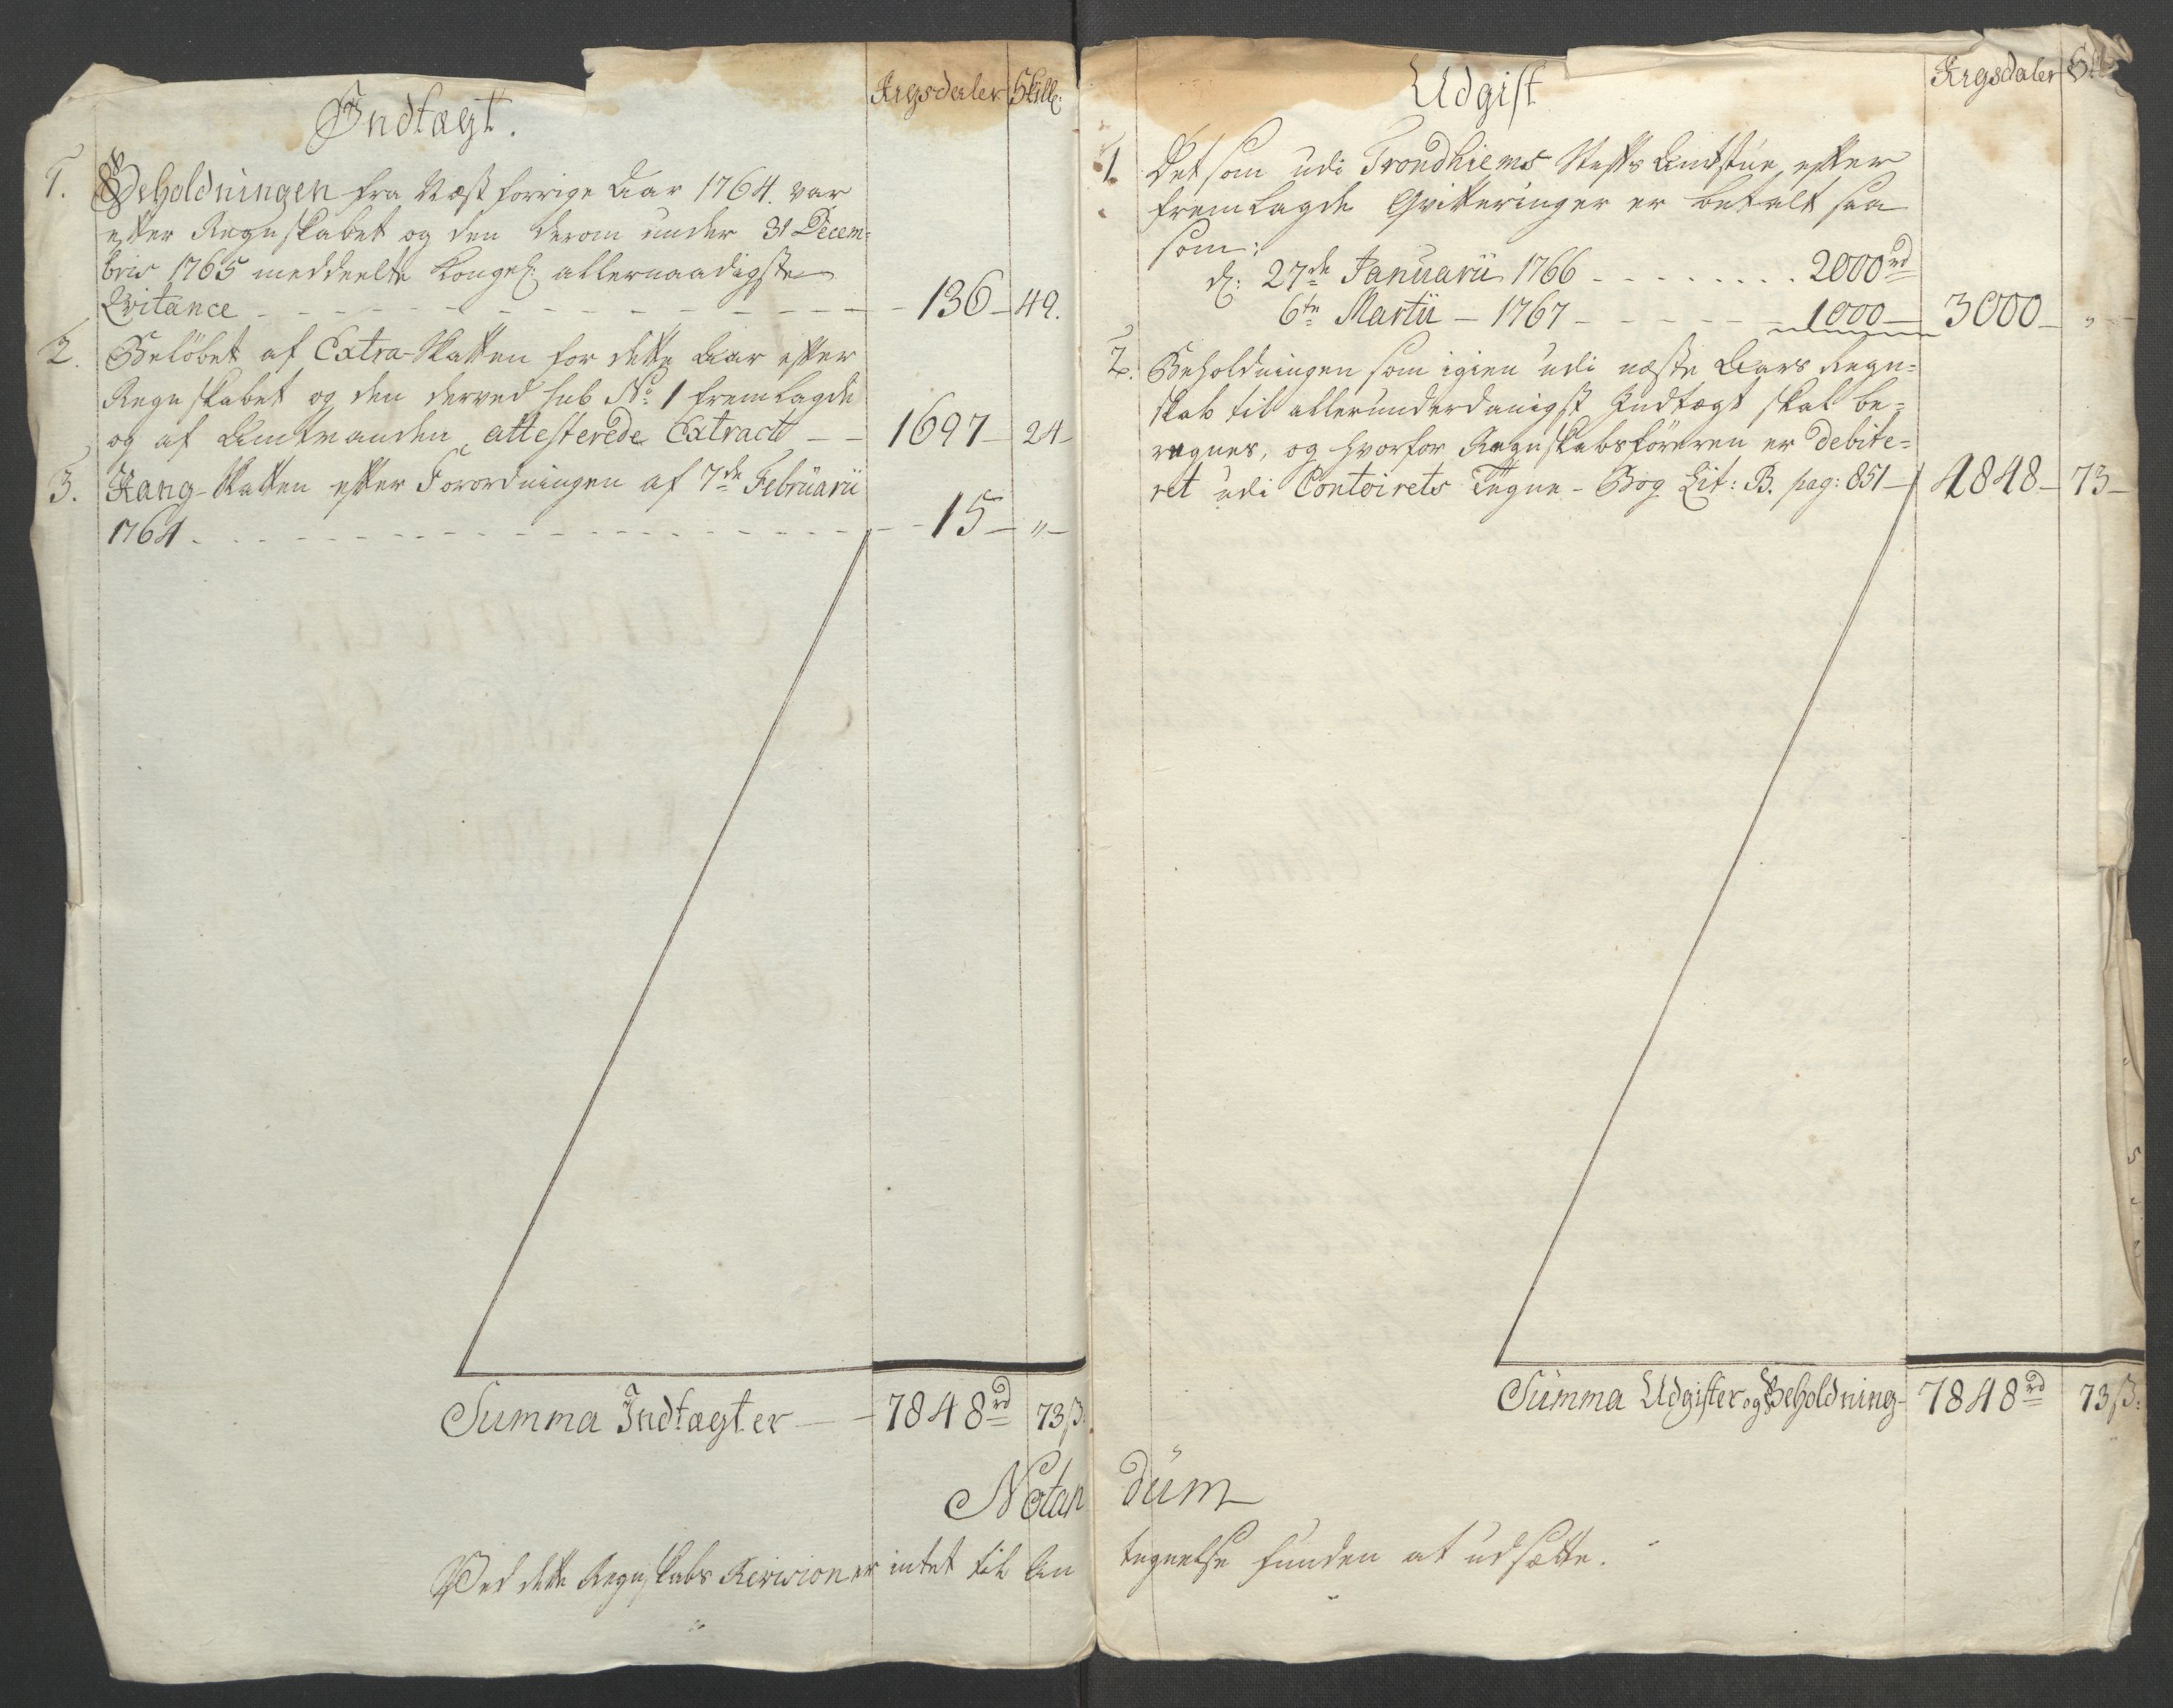 Indtægt.
Rigsdaler Skill:
1. Beholdningen fra Næst forrige Aar 1764. var
efter Regnskabet og den derom under 31 Decem-
bris 1765 meddeelte Kongel: allernaadigste
Qvitance - - - 136 - 49.
2. Beløbet af Extra-Skatten for dette Aar efter
Regnskabet og den derved sub No: 1 fremlagde
og af Amtmanden attesterede Extract - - 1697 - 24 -
3. Rang-Skatten efter Forordningen af 7de Februarii
1764 - - - 15 - " -
Summa Indtægter - - 7848 rd 73 ß:
Udgift
Rigsdaler
1. Det som udi Trondhiems Stifts Amtstue, efter
fremlagde Qvitteringer er betalt saa
som:
d: 27de Januarii 1766 - - - 2000 rd
6te Martii - 1767 - - - 1000 - 3000 - " -
2. Beholdningen som igien udi næste Aars Regn-
skab til allerunderdanigst Indtægt skal be-
regnes, og hvorfor Regnskabsføreren er debite-
ret udi Contoirets Tegne-Bog Lit: B. pag: 851 - 4848 - 73 -
Summa Udgifter og Beholdning - 7848 rd 73 ß:
Notandum
Ved dette Regnskabs Revision er intet til Antegnelse funden at udsætte.